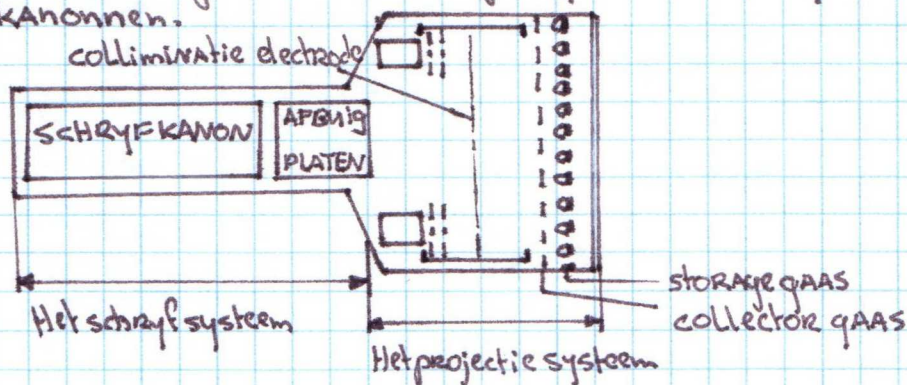 kanonnen.
colliminatie electrode
SCHRYFKANON
AFBuig
PLATEN
storage gaas
collector gaas
Het schryfsysteem
Het projectie systeem